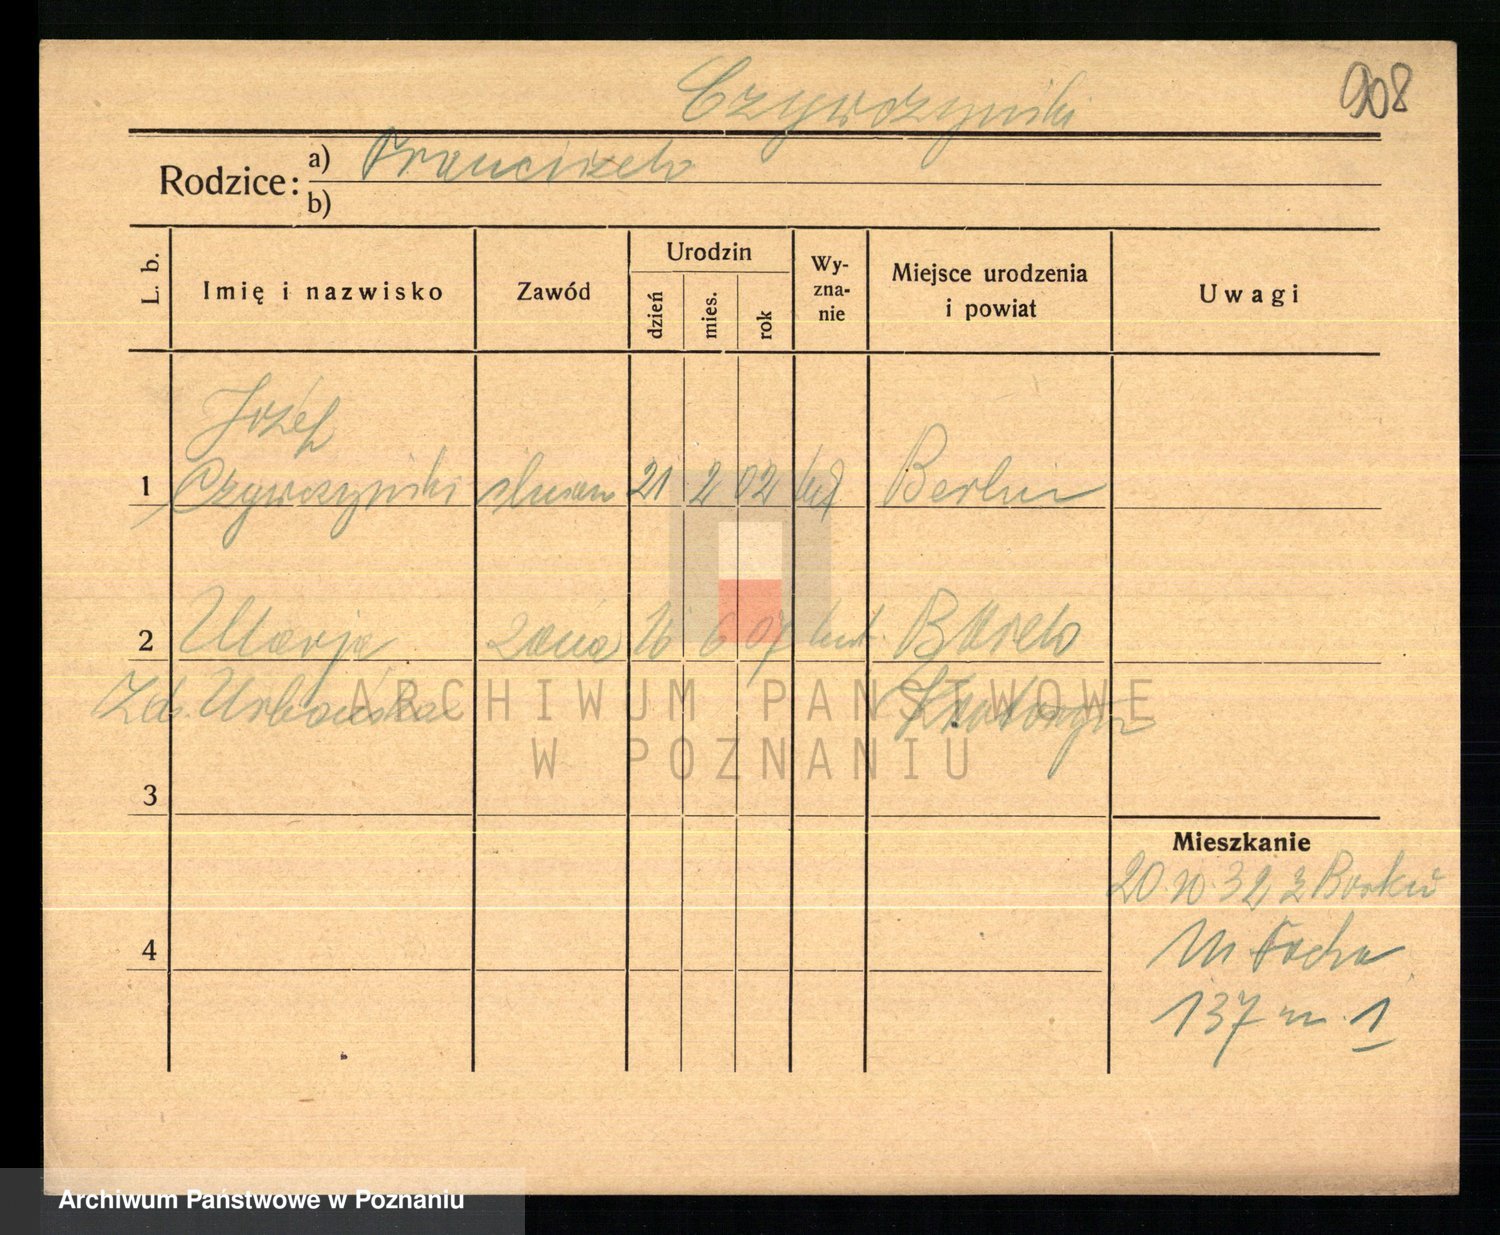 908
Czywczyński
Rodzice: a) Franciszek
b)
L. b. Imię i nazwisko Zawód Urodzin dzień mies. rok Wy-zna-nie Miejsce urodzenia i powiat Uwagi
Józef
1 Czywczyński ślusarz 21 2 02 kat Berlin
2 Marja żona 16 6 07 kat. Borek
Urbańska
3
Mieszkanie
20 10 32 z Borku
4 M Focha
137 m. 1
ARCHIWUM PAŃSTWOWE
W POZNANIU
Archiwum Państwowe w Poznaniu